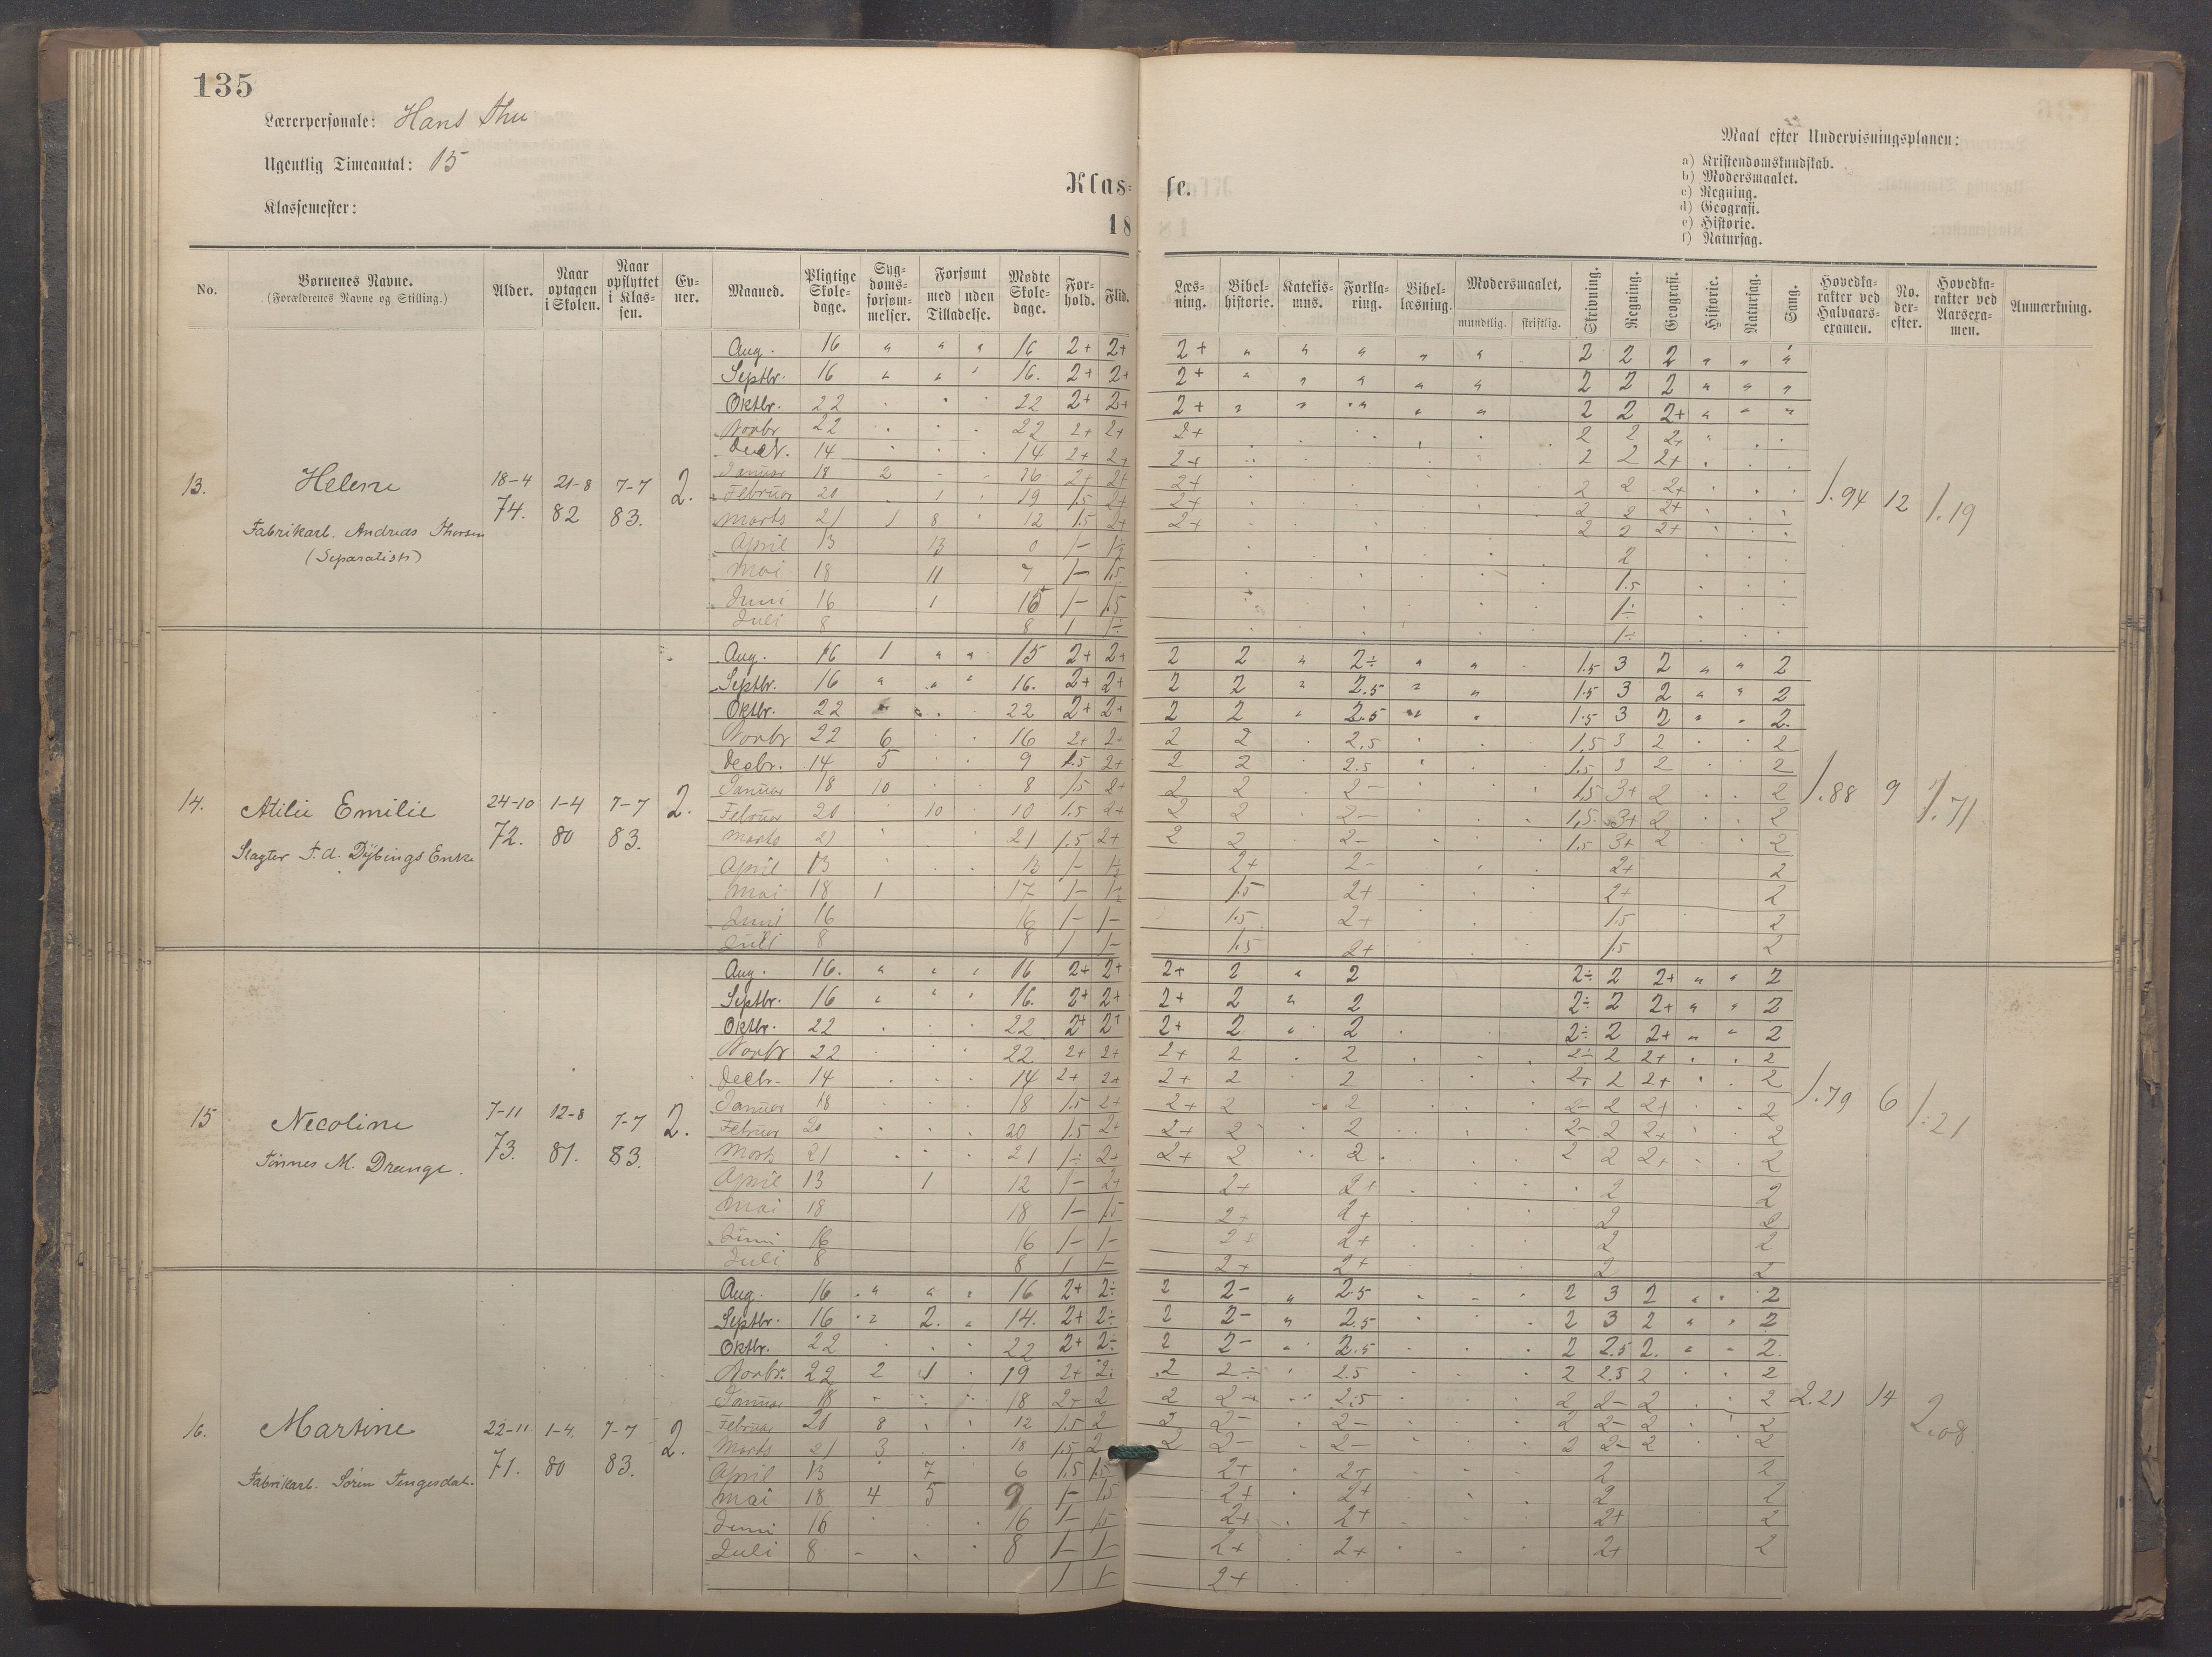 135
Lærerpersonale: Hans Thu
Ugentlig Timeantal: 15
Klassemester:
Klas= se.
18
Maal efter Undervisningsplanen:
a) Kristendomskundskab.
b) Modersmaalet.
c) Regning.
d) Geografi.
e) Historie.
f) Naturfag.
No. Børnenes Navne. (Forældrenes Navne og Stilling.) Alder. Naar optagen i Skolen. Naar opflyttet i Klassen. Evner. Maaned. Pligtige Skoledage. Sygdomsforsømmelser. Forsømt med uden Tilladelse. Mødte Skoledage. Forhold. Flid. Læsning. Bibelhistorie. Katekismus. Forklaring. Bibellæsning. Modersmaalet, mundtlig. skriftlig. Skrivning. Regning. Geografi. Historie. Naturfag. Sang. Hovedkarakter ved Halvaarsexamen. No. derefter. Hovedkarakter ved Aarsexamen. Anmærkning.
13. Helene 18-4 74. 21-8 82 7-7 83. 2. 1.94 12 1.19
Fabrikarb. Andreas Thorsen
(Separatist)
Aug. 16 " " " 16 2+ 2+ 2+ " " " " " 2 2 2 " " "
Septbr. 16 " " " 16. 2+ 2+ 2+ " " " " " 2 2 2 " " "
Oktbr. 22 22 2+ 2+ 2+ " " " " " 2 2 2+ " " "
Novbr 22 22 2+ 2+ 2+ 2 2 2+
Decbr. 14 14 2+ 2+ 2+ 2 2 2+
Januar 18 2 16 2+ 2+ 2+ 2 2 2+
Februar 20 1 19 1.5 2+ 2+ 2 2 2+
Marts 21 1 8 12 1.5 2+ 2+ 2 2 2+
April 13 13 0 1- 1÷ 2
Mai 18 11 7 1- 1.5 1.5
Juni 16 1 15 1- 1.5 1÷
Juli 8 8 1 1÷ 1÷
14. Atilie Emilie 24-10 72. 1-4 80 7-7 83. 2. 1.88 9 1.71
Slagter T. A. Dÿbings Enke
Aug. 16 1 " " 15 2+ 2+ 2 2 " 2÷ " " 1.5 3 2 " " 2
Septbr. 16 " " " 16. 2+ 2+ 2 2 " 2.5 " " 1.5 3 2 " " 2
Oktbr. 22 22 2+ 2+ 2 2 " 2.5 " " 1.5 3 2 " " 2.
Novbr 22 6 16 2+ 2+ 2 2 2.5 1.5 3 2 2
Decbr. 14 5 9 1.5 2+ 2 2 2.5 1.5 3 2 2
Januar 18 10 8 1.5 2+ 2 2 2- 1.5 3+ 2 2
Februar 20 10 10 1.5 2+ 2 2 2- 1.5 3+ 2 2
Marts 21 21 1.5 2+ 2 2 2- 1.5 3+ 2 2
April 13 13 1- 1÷ 2+ 2- 2+ 2
Mai 18 1 17 1- 1÷ 1.5 2+ 2+ 2
Juni 16 16 1- 1- 1.5 2+ 1.5 2
Juli 8 8 1 1- 1.5 2+ 1.5 2
15 Necoline 7-11 73. 12-8 81. 7-7 83. 2. 1.79 6 1.21
Tønnes M. Drange.
Aug. 16. " " " 16 2+ 2+ 2+ 2 " 2 2÷ 2 2+ " " 2
Septbr. 16 " " " 16. 2+ 2+ 2+ 2 " 2 2÷ 2 2+ " " 2
Oktbr. 22 22 2+ 2+ 2+ 2 " 2 2÷ 2 2+ " " 2
Novbr 22 22 2+ 2+ 2+ 2 2 2÷ 2 2+ 2
Decbr. 14 14 2+ 2+ 2+ 2 2 2÷ 2 2+ 2
Januar 18 18 1.5 2+ 2+ 2 2 2- 2 2+ 2
Februar 20 20 1.5 2+ 2+ 2 2 2- 2 2+ 2
Marts 21 21 1÷ 2+ 2+ 2 2 2 2 2+ 2
April 13 1 12 1- 2+ 2+ 2+ 2 2
Mai 18 18 1- 1.5 2+ 2+ 2 2
Juni 16 16 1- 1- 2+ 2+ 2 2
Juli 8 8 1 1- 2+ 2+ 2 2
16. Martine 22-11 71. 1-4. 80 7-7 83. 2. 2.21 14 2.08
Fabrikarb. Sören Tengesdal.
Aug. 16 " " " 16 2+ 2÷ 2 2- " 2.5 2 3 2 " " 2
Septbr. 16 " 2. " 14. 2+ 2÷ 2 2- " 2.5 2 3 2 " " 2
Oktbr. 22 22 2+ 2÷ 2 2- " 2.5 2 2.5 2. " " 2.
Novbr. 22 2 1 19 2+ 2÷ 2 2÷ 2.5 2 2.5 2 2
Januar 18 18 2+ 2 2 2- 2.5 2 2- 2 2
Februar 20 8 12 1.5 2 2 2- 2- 2 2- 2 2
Marts 21 3 18 1.5 2 2 2- 2- 2 2- 2 2
April 13 7 6 1.5 1.5 2+ 2+ 2 2
Mai 18 4 5 9 1- 1.5 2+ 2+ 2 2
Juni 16 16 1- 1.5 2+ 2+ 2+ 2
Juli 8 8 1- 1- 2+ 2+ 2+ 2
1 1- 2+